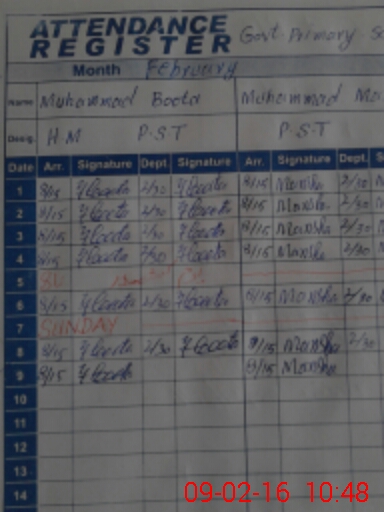 ATTENDANCE
REGISTER Govt. Primary
Month February
Name Muhammad Boota Muhammad
Desig. H.M P.S.T P.S.T
Date Arr. Signature Dept. Signature Arr. Signature Dept.
1 8/15 Boota 2/30 Boota 8/15 Mansha 2/30
2 8/15 Boota 2/30 Boota 8/15 Mansha 2/30
3 8/15 Boota 2/30 Boota 8/15 Mansha 2/30
4 8/15 Boota 2/30 Boota 8/15 Mansha 2/30
5
6 8/15 Boota 2/30 Boota 8/15 Mansha 2/30
7 SUNDAY
8 8/15 Boota 2/30 Boota 8/15 Mansha 2/30
9 8/15 Boota 8/15 Mansha
10
11
12
13
14
09-02-16 10:48